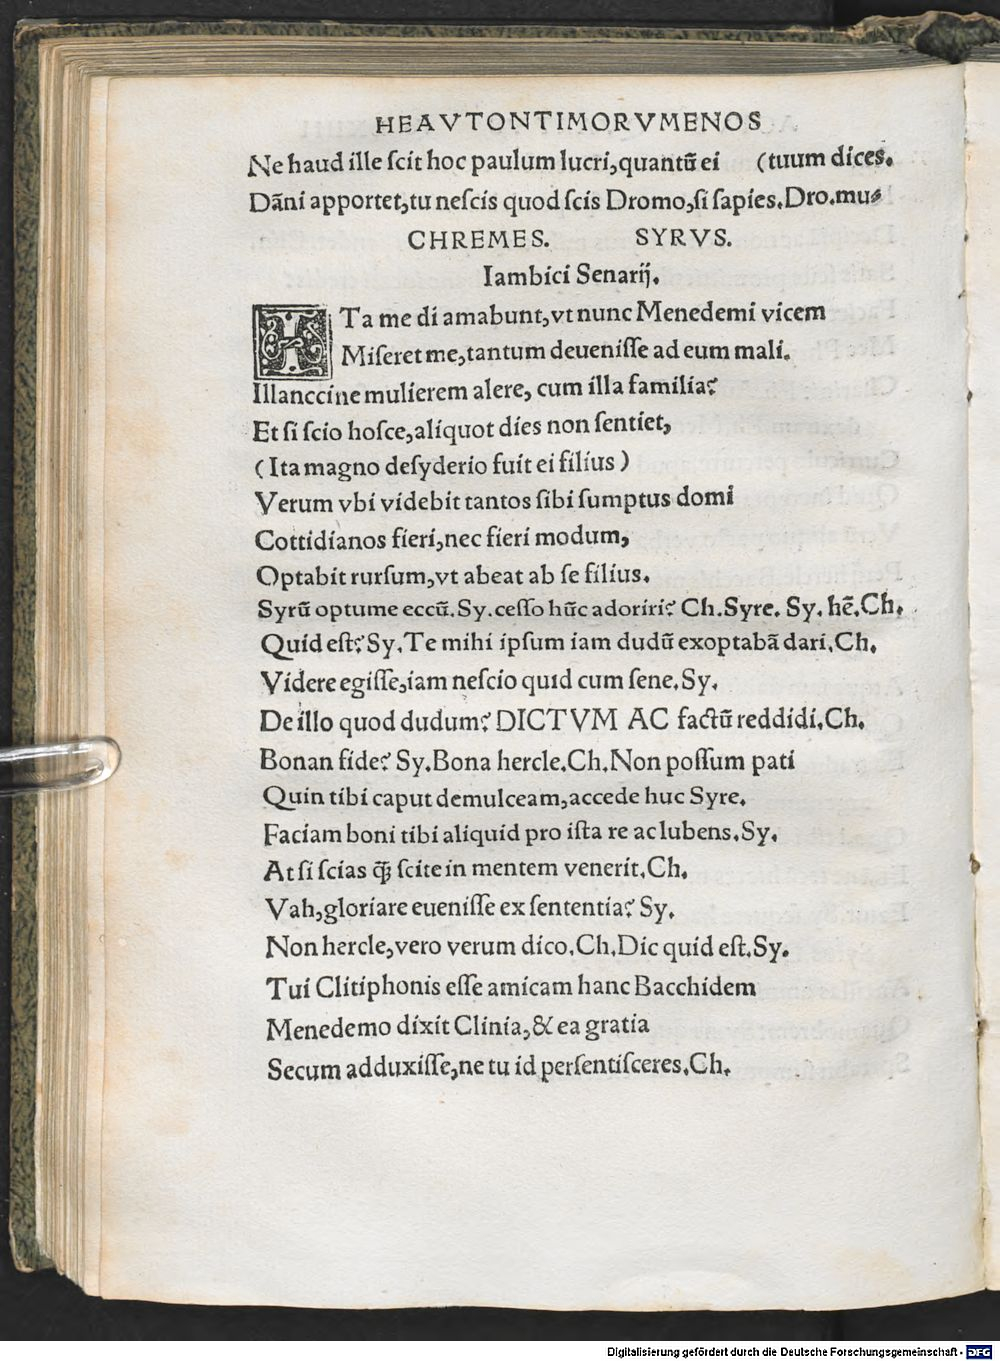 HEAVTONTIMORVMENOS
Ne haud ille ſcit hoc paulum lucri,quantū ei (tuum dices.
Dāni apportet,tu neſcis quod ſcis Dromo,ſi ſapies.Dro.mu⸗
CHREMES. SYRVS.
Iambici Senarij.
ITa me di amabunt,vt nunc Menedemi vicem
Miſeret me,tantum deueniſſe ad eum mali.
Illanccine mulierem alere, cum illa familia?
Et ſi ſcio hoſce,aliquot dies non ſentiet,
(Ita magno deſyderio fuit ei filius)
Verum vbi videbit tantos ſibi ſumptus domi
Cottidianos fieri,nec fieri modum,
Optabit rurſum,vt abeat ab ſe filius.
Syrū optume eccū.Sy.ceſſo hūc adoriri? Ch.Syre. Sy. hē.Ch.
Quid eſt?Sy.Te mihi ipſum iam dudū exoptabā dari.Ch.
Videre egiſſe,iam neſcio quid cum ſene.Sy.
De illo quod dudum? DICTVM AC factū reddidi.Ch.
Bonan fide? Sy.Bona hercle.Ch.Non poſſum pati
Quin tibi caput demulceam,accede huc Syre.
Faciam boni tibi aliquid pro iſta re ac lubens.Sy.
At ſi ſcias ꝙ̄ ſcite in mentem venerit.Ch.
Vah,gloriare eueniſſe ex ſententia? Sy.
Non hercle,vero verum dico.Ch.Dic quid eſt.Sy.
Tui Clitiphonis eſſe amicam hanc Bacchidem
Menedemo dixit Clinia,& ea gratia
Secum adduxiſſe,ne tu id perſentiſceres.Ch.
Digitalisierung gefördert durch die Deutsche Forschungsgemeinschaft - DFG